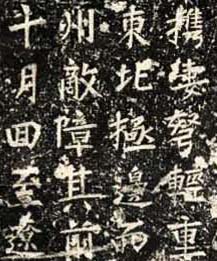 携妻孥輕重
東北極邊而
州敵障其前
十月回至遼